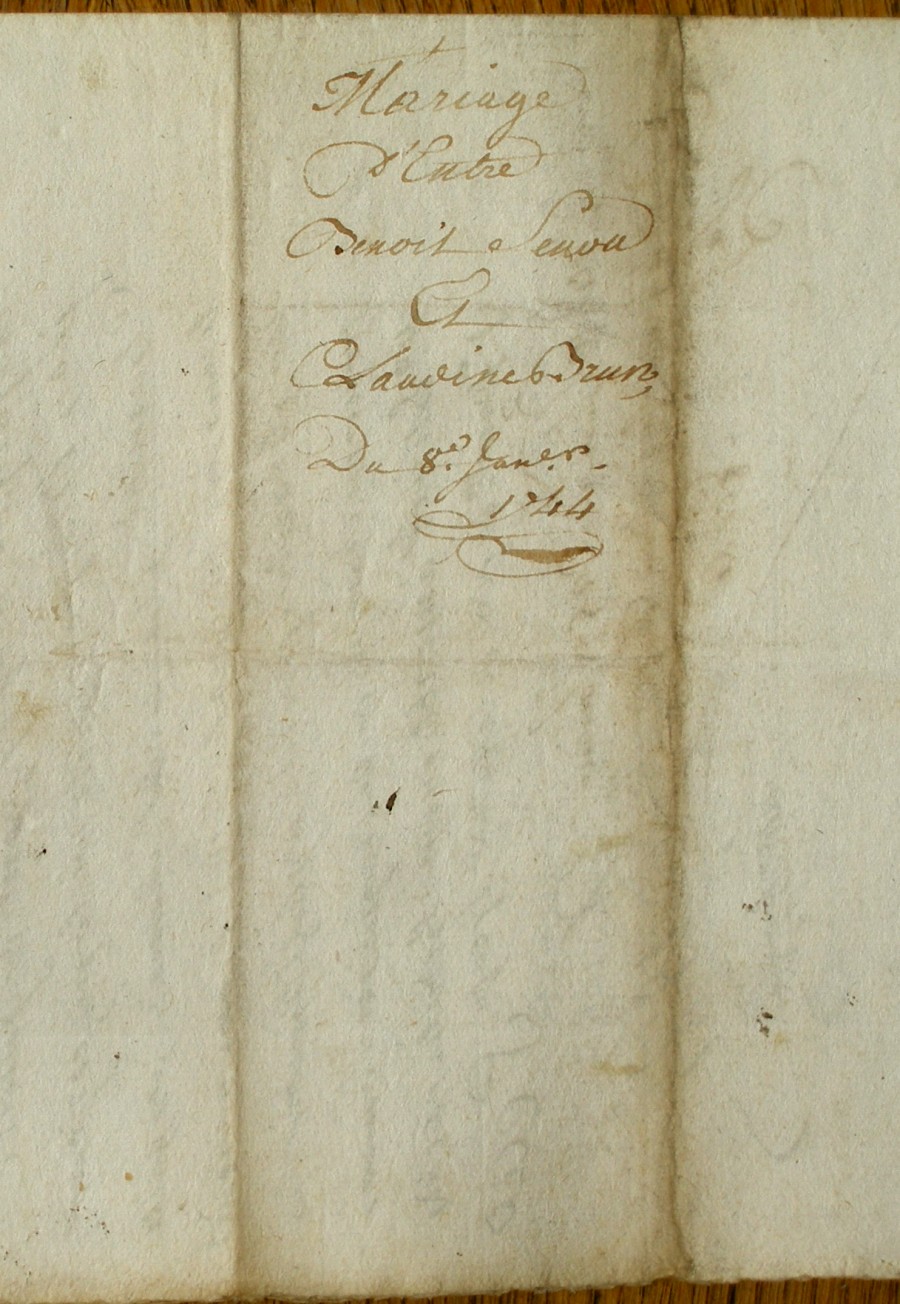 Mariage
d'Entre
Benoit Senou
Et
Claudine Brun,
Du 8e. Janer.
1744